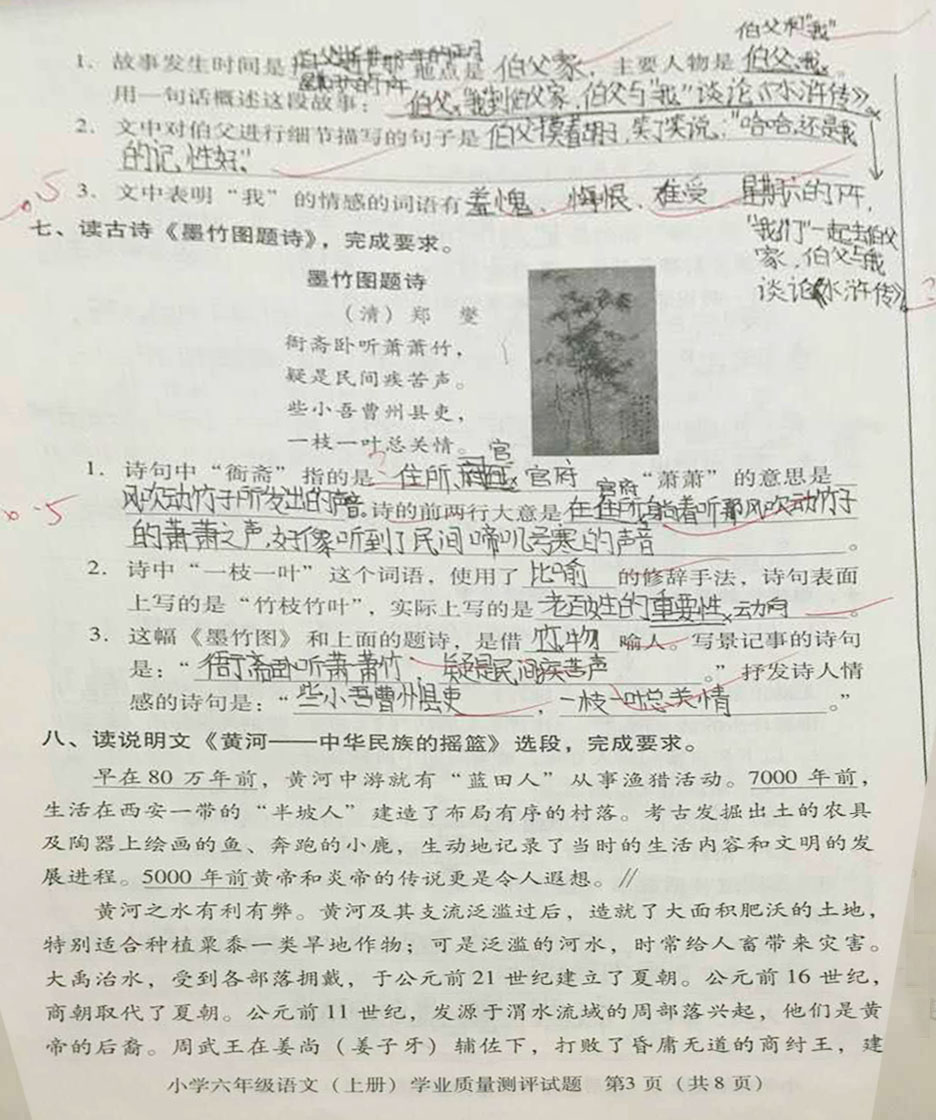 伯父和"我"
1. 故事发生时间是 地点是 伯父家,主要人物是 伯父、我。
星期六的下午
用一句话概述这段故事: 伯父,"我到伯父家,伯父与"我"谈论《水浒传》。
2. 文中对伯父进行细节描写的句子是 伯父摸着胡子,笑了笑说:"哈哈,还是我
的记性好。"
3. 文中表明“我”的情感的词语有 羞愧、悔恨、难受
星期六的下午,
"我们"一起去伯父
家,伯父与我
谈论《水浒传》。
-0.5
七、读古诗《墨竹图题诗》,完成要求。
墨竹图题诗
(清)郑 燮
衙斋卧听萧萧竹,
疑是民间疾苦声。
些小吾曹州县吏,
一枝一叶总关情。
官
1. 诗句中“衙斋”指的是 住所、 官府 “萧萧”的意思是
官府
风吹动竹子所发出的声音。诗的前两行大意是 在住所躺着听那风吹动竹子
-5
的萧萧之声,好像听到了民间啼饥号寒的声音。
2. 诗中“一枝一叶”这个词语,使用了 比喻 的修辞手法,诗句表面
上写的是“竹枝竹叶”,实际上写的是 老百姓的重要性 动向。
3. 这幅《墨竹图》和上面的题诗,是借 竹物 喻人。写景记事的诗句
是:“衙斋卧听萧萧竹,疑是民间疾苦声。”抒发诗人情
感的诗句是:“些小吾曹州县吏,一枝一叶总关情。”
八、读说明文《黄河——中华民族的摇篮》选段,完成要求。
早在 80 万年前,黄河中游就有“蓝田人”从事渔猎活动。7000 年前,
生活在西安一带的“半坡人”建造了布局有序的村落。考古发掘出土的农具
及陶器上绘画的鱼、奔跑的小鹿,生动地记录了当时的生活内容和文明的发
展进程。5000 年前黄帝和炎帝的传说更是令人遐想。//
黄河之水有利有弊。黄河及其支流泛滥过后,造就了大面积肥沃的土地,
特别适合种植粟黍一类旱地作物;可是泛滥的河水,时常给人畜带来灾害。
大禹治水,受到各部落拥戴,于公元前 21 世纪建立了夏朝。公元前 16 世纪,
商朝取代了夏朝。公元前 11 世纪,发源于渭水流域的周部落兴起,他们是黄
帝的后裔。周武王在姜尚(姜子牙)辅佐下,打败了昏庸无道的商纣王,建
小学六年级语文(上册)学业质量测评试题 第3页(共8页)